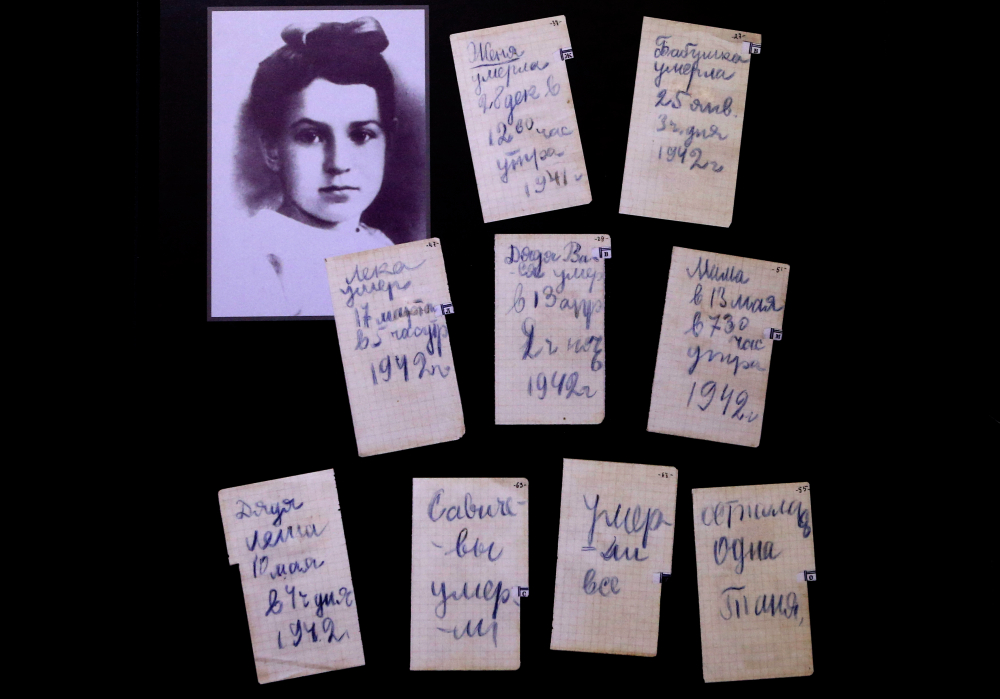 -31-
Женя
умерла
28 дек в
12 00 час
утра
1941 г
Ж
-23-
Бабушка
умерла
25 янв.
3 ч. дня
1942 г
Б
-43-
Лека
умер
17 марта
в 5 час утр
1942 г
Л
-29-
Дядя Ва-
-ся умер
в 13 апр
2 ч ноч
1942 г
В
-51-
Мама
в 13 мая
в 7 30
час
утра
1942 г
М
Дядя
Леша
10 мая
в 4 ч дня
1942
-63-
Савиче-
-вы
умер
-ли
С
-67-
Умер
-ли
все
-55-
осталась
одна
Таня,
О